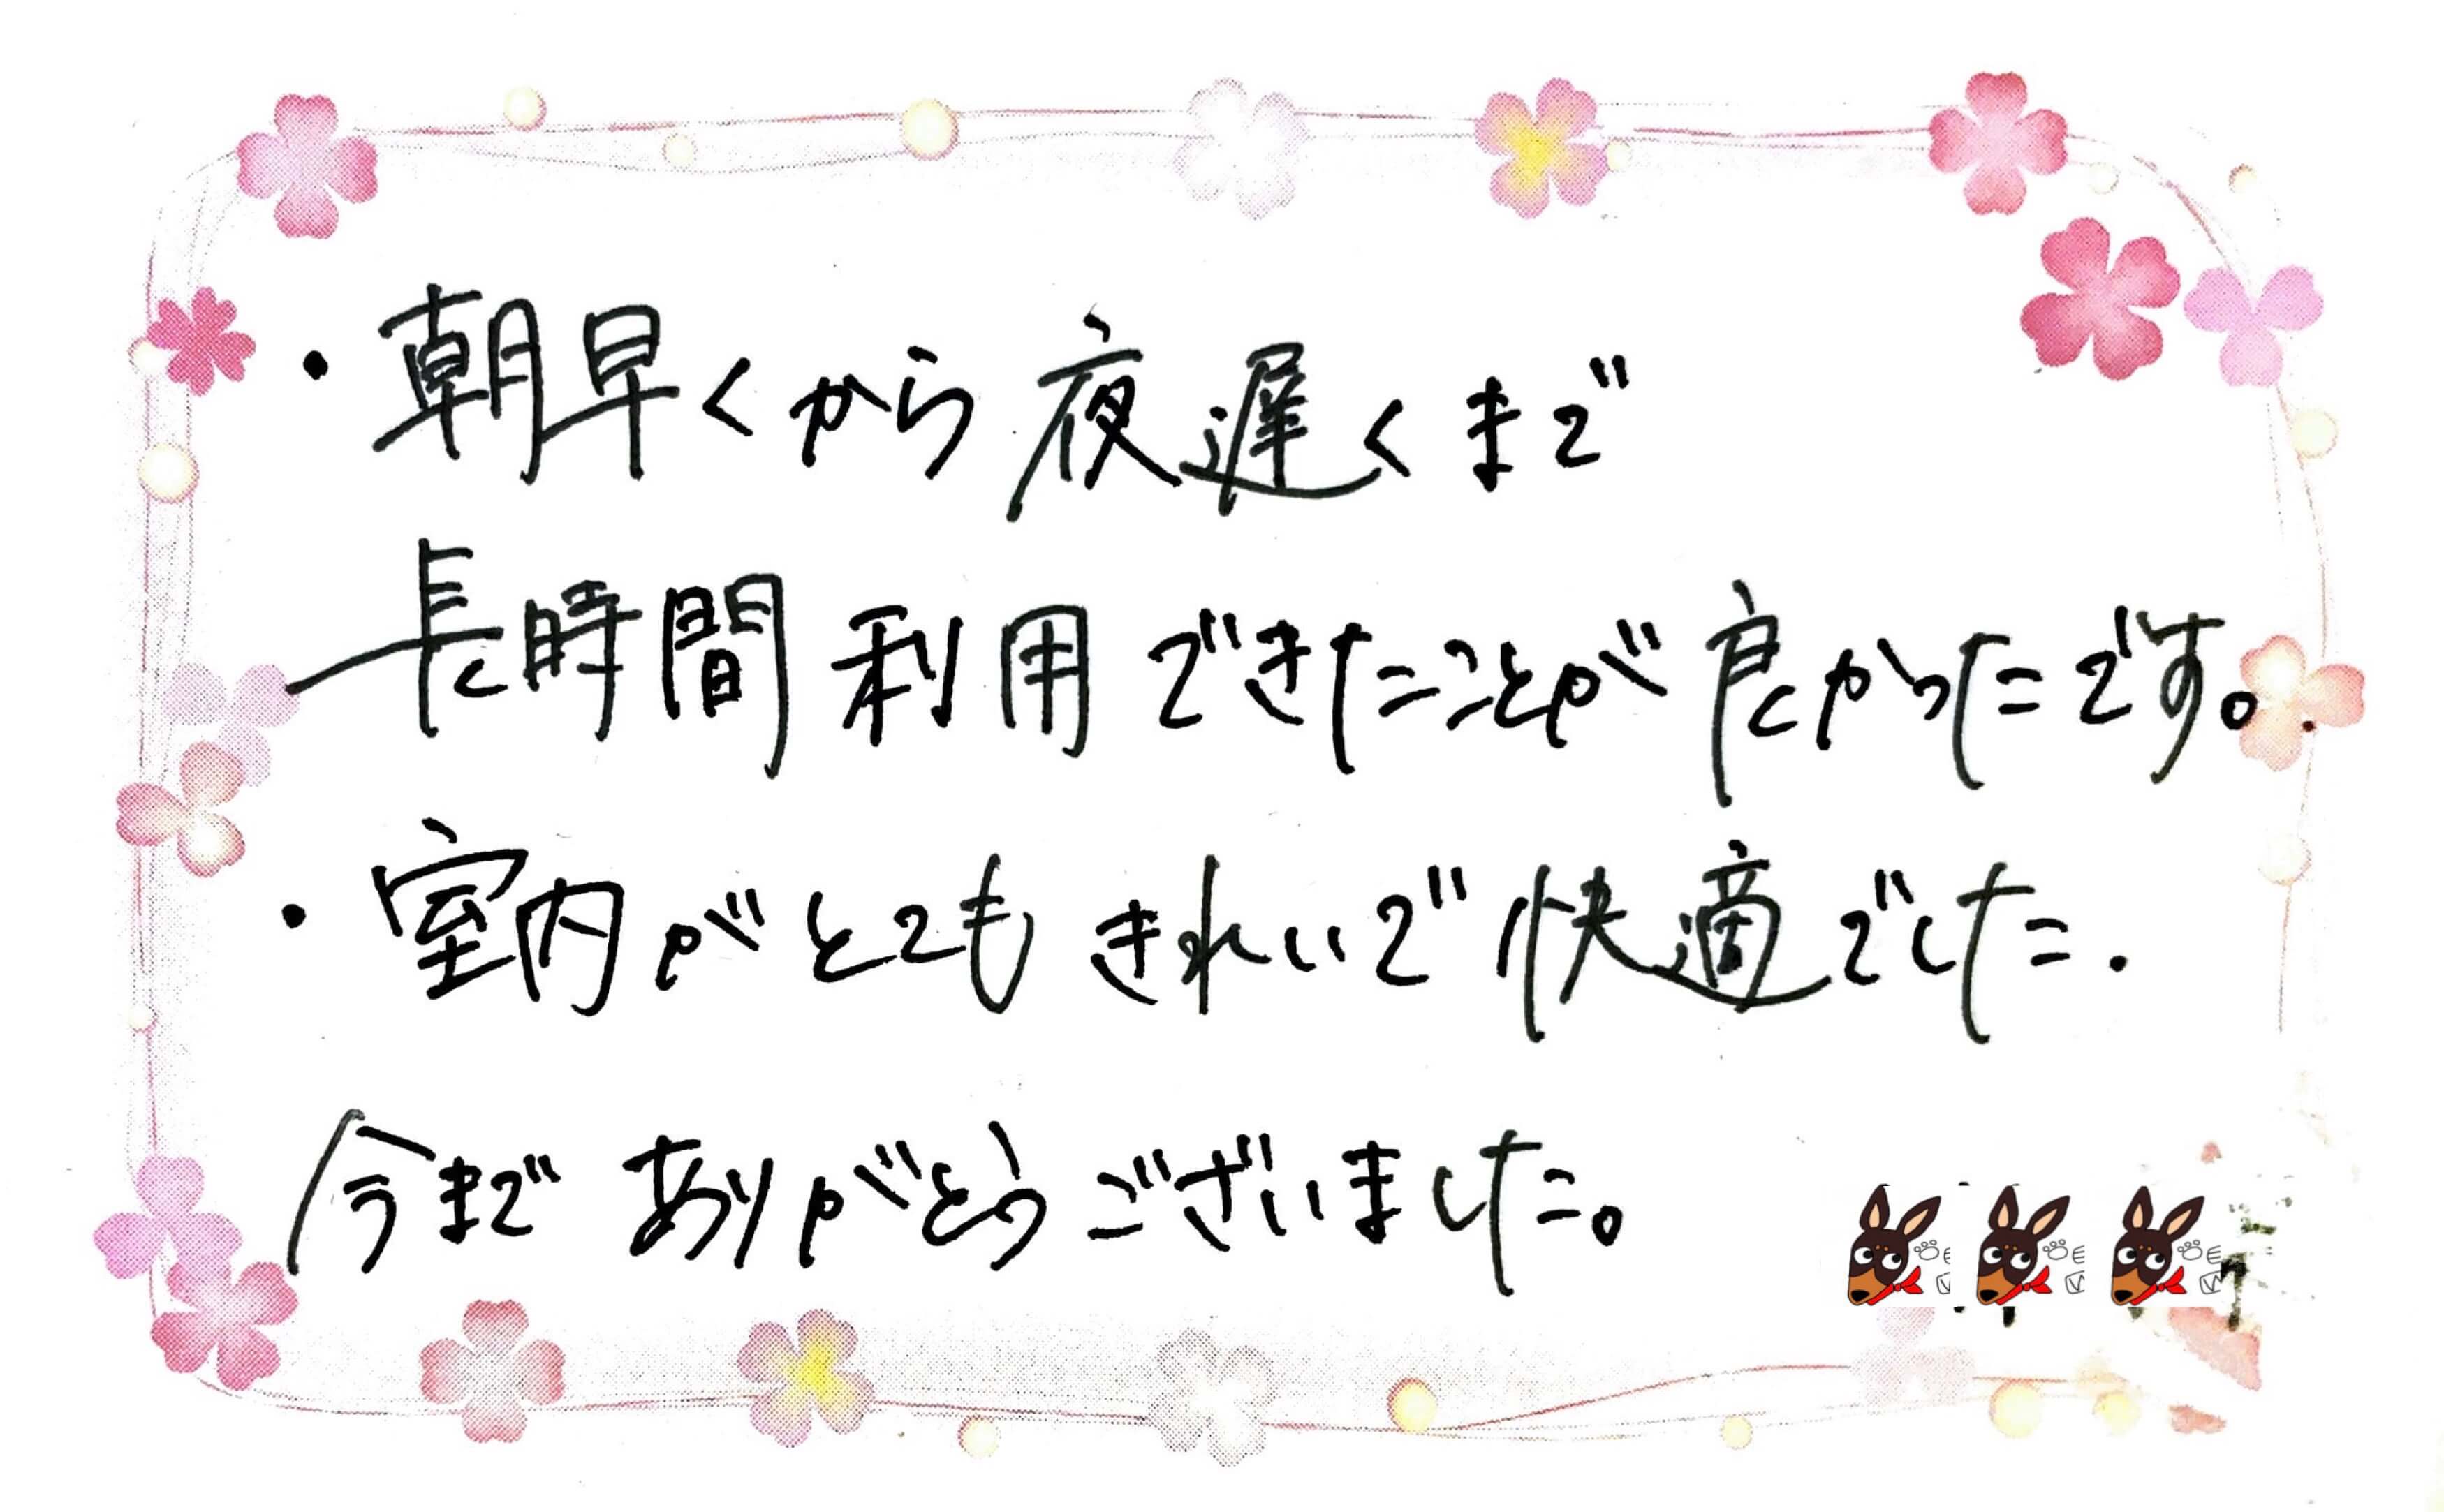 ・朝早くから夜遅くまで
長時間利用できたことが良かったです。
・室内がとてもきれいで快適でした.
今まで ありがとうございました。